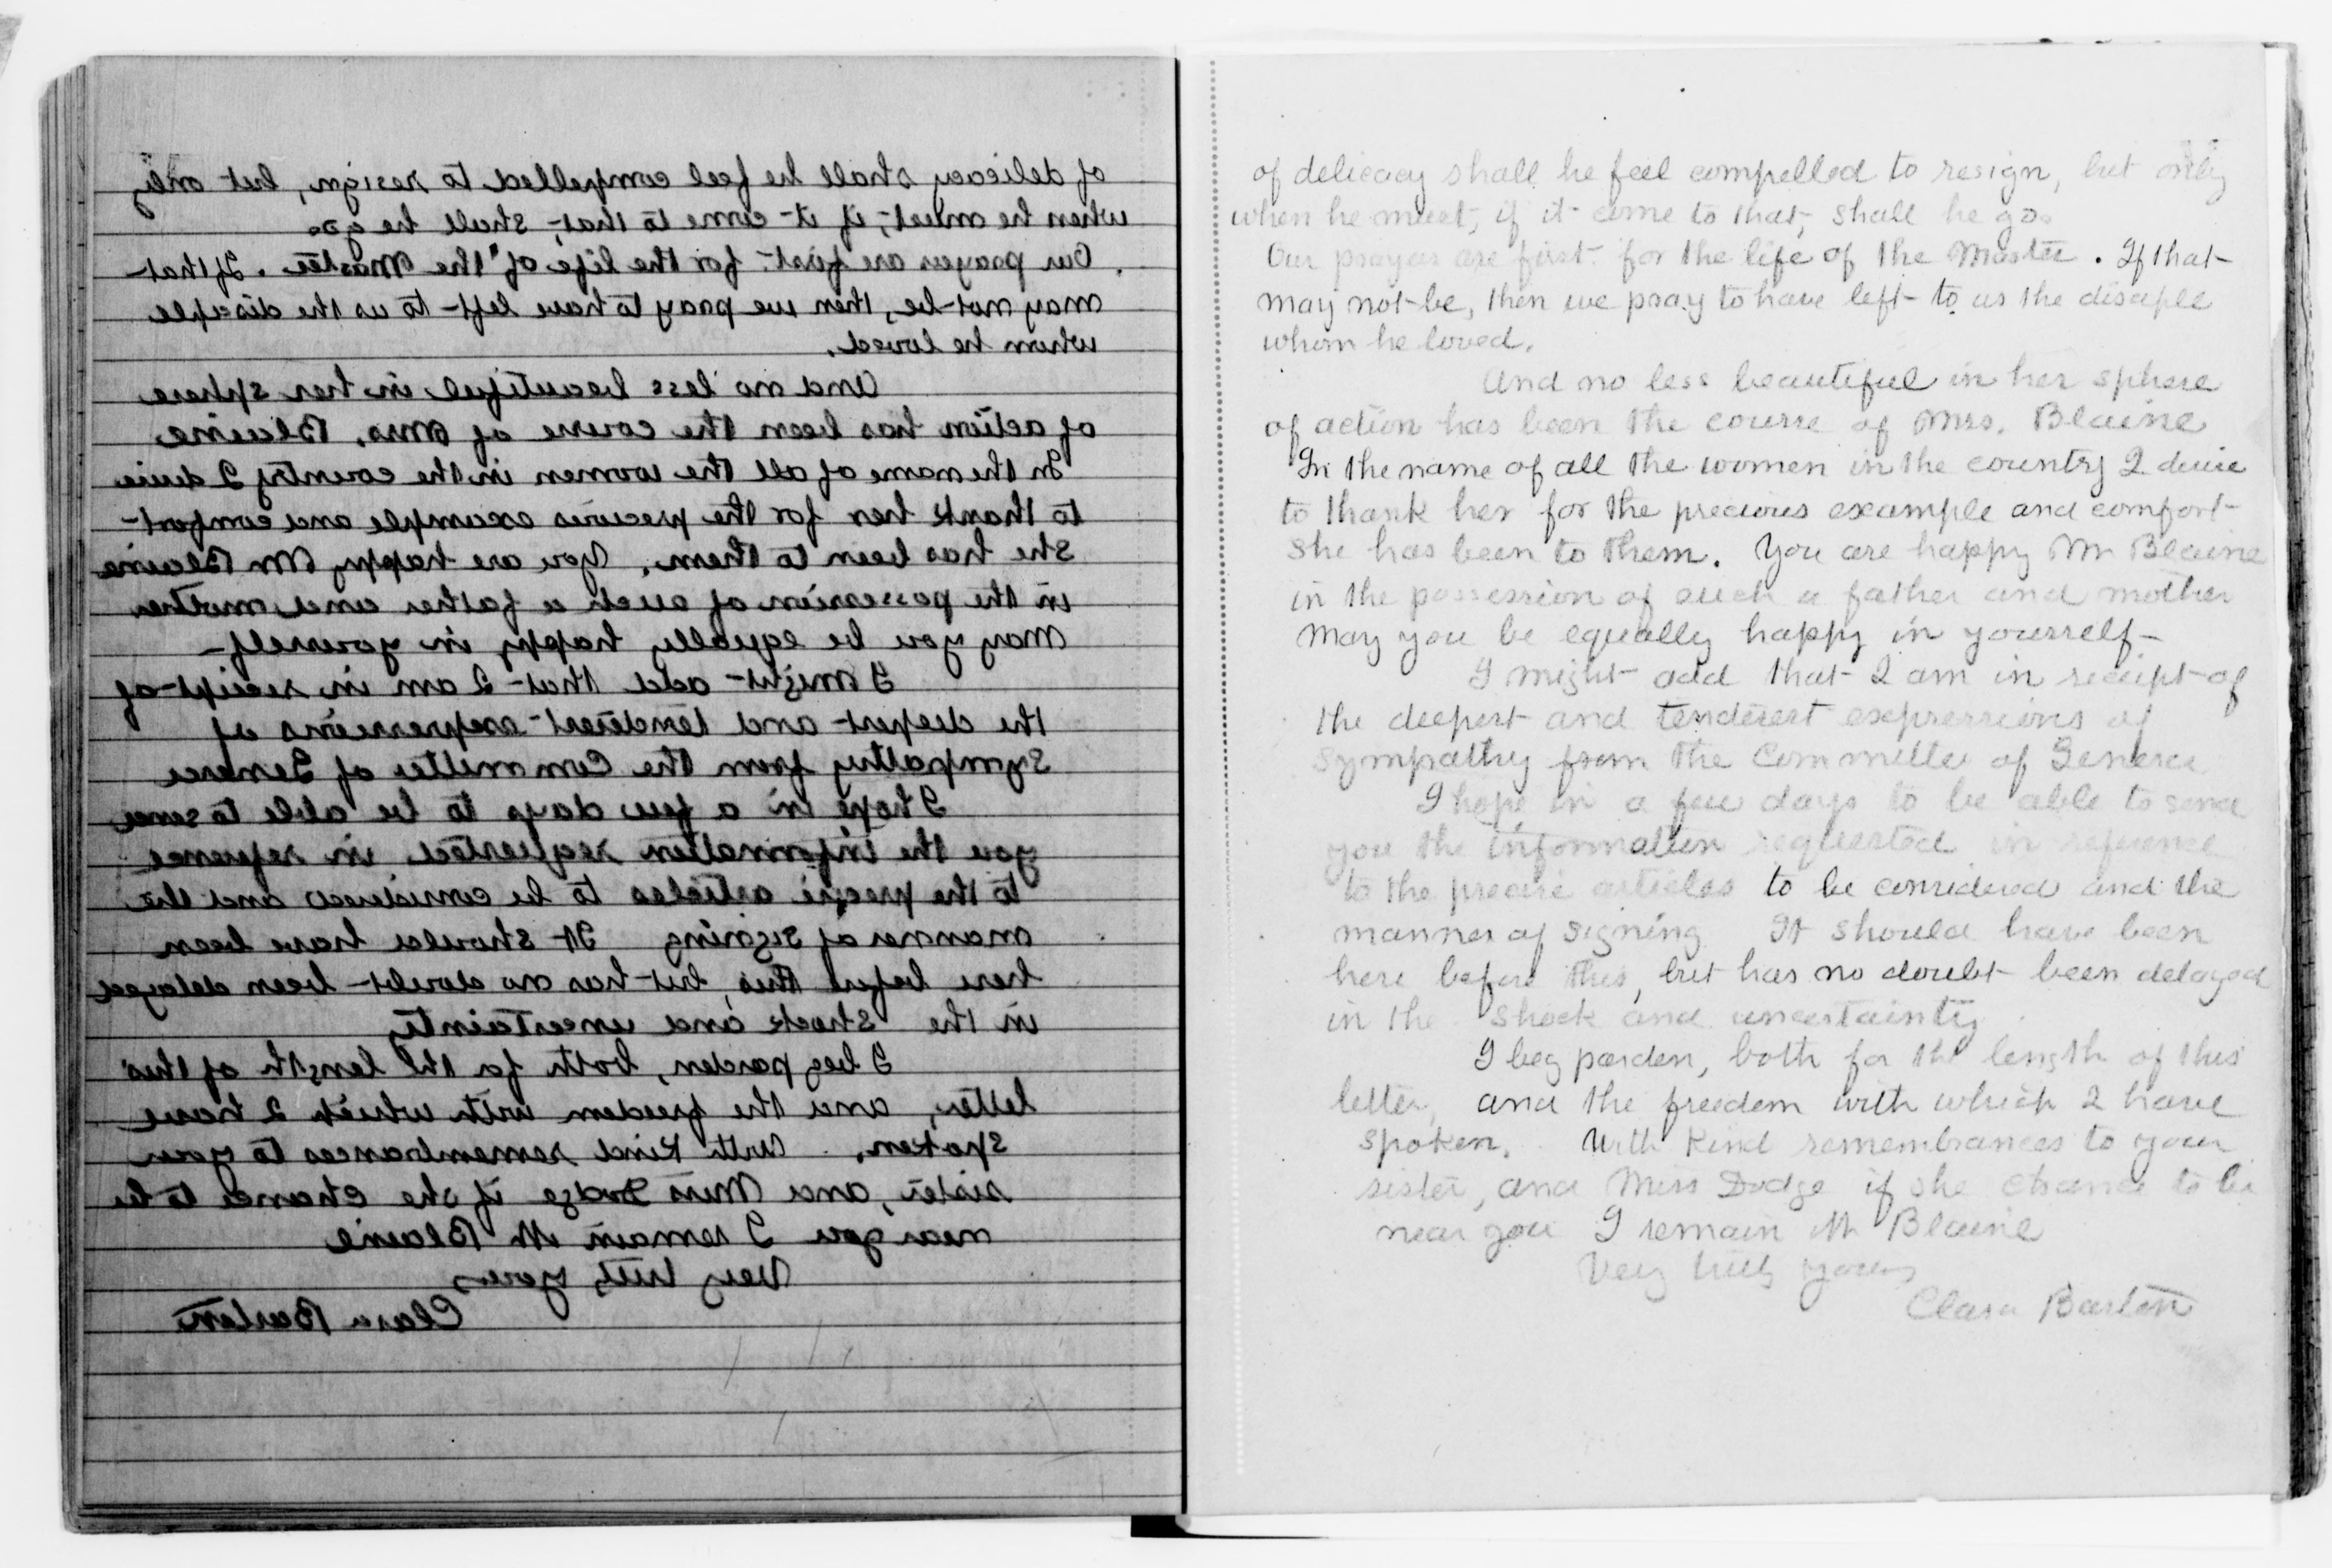 of delicacy shall he feel compelled to resign, but only
when he must, if it come to that, shall he go.
Our prayers are first for the life of the Master. If that
may not be, then we pray to have left to us the disciple
whom he loved.
And no less beautiful in her sphere
of action has been the course of Mrs. Blaine
In the name of all the women in the country I desire
to thank her for the precious example and comfort
she has been to them. You are happy Mr Blaine
in the possession of such a father and mother
may you be equally happy in yourself—
I might add that I am in receipt of
the deepest and tenderest expressions of
sympathy from the Committee of Geneva
I hope in a few days to be able to send
you the information requested in reference
to the precise articles to be considered and the
manner of signing It should have been
here before this, but has no doubt been delayed
in the shock and uncertainty
I beg parden, both for the length of this
letter, and the freedom with which I have
spoken. With kind remembrances to your
sister, and Miss Dodge if she chance to be
near you I remain Mr Blaine
Very truly yours
Clara Barton